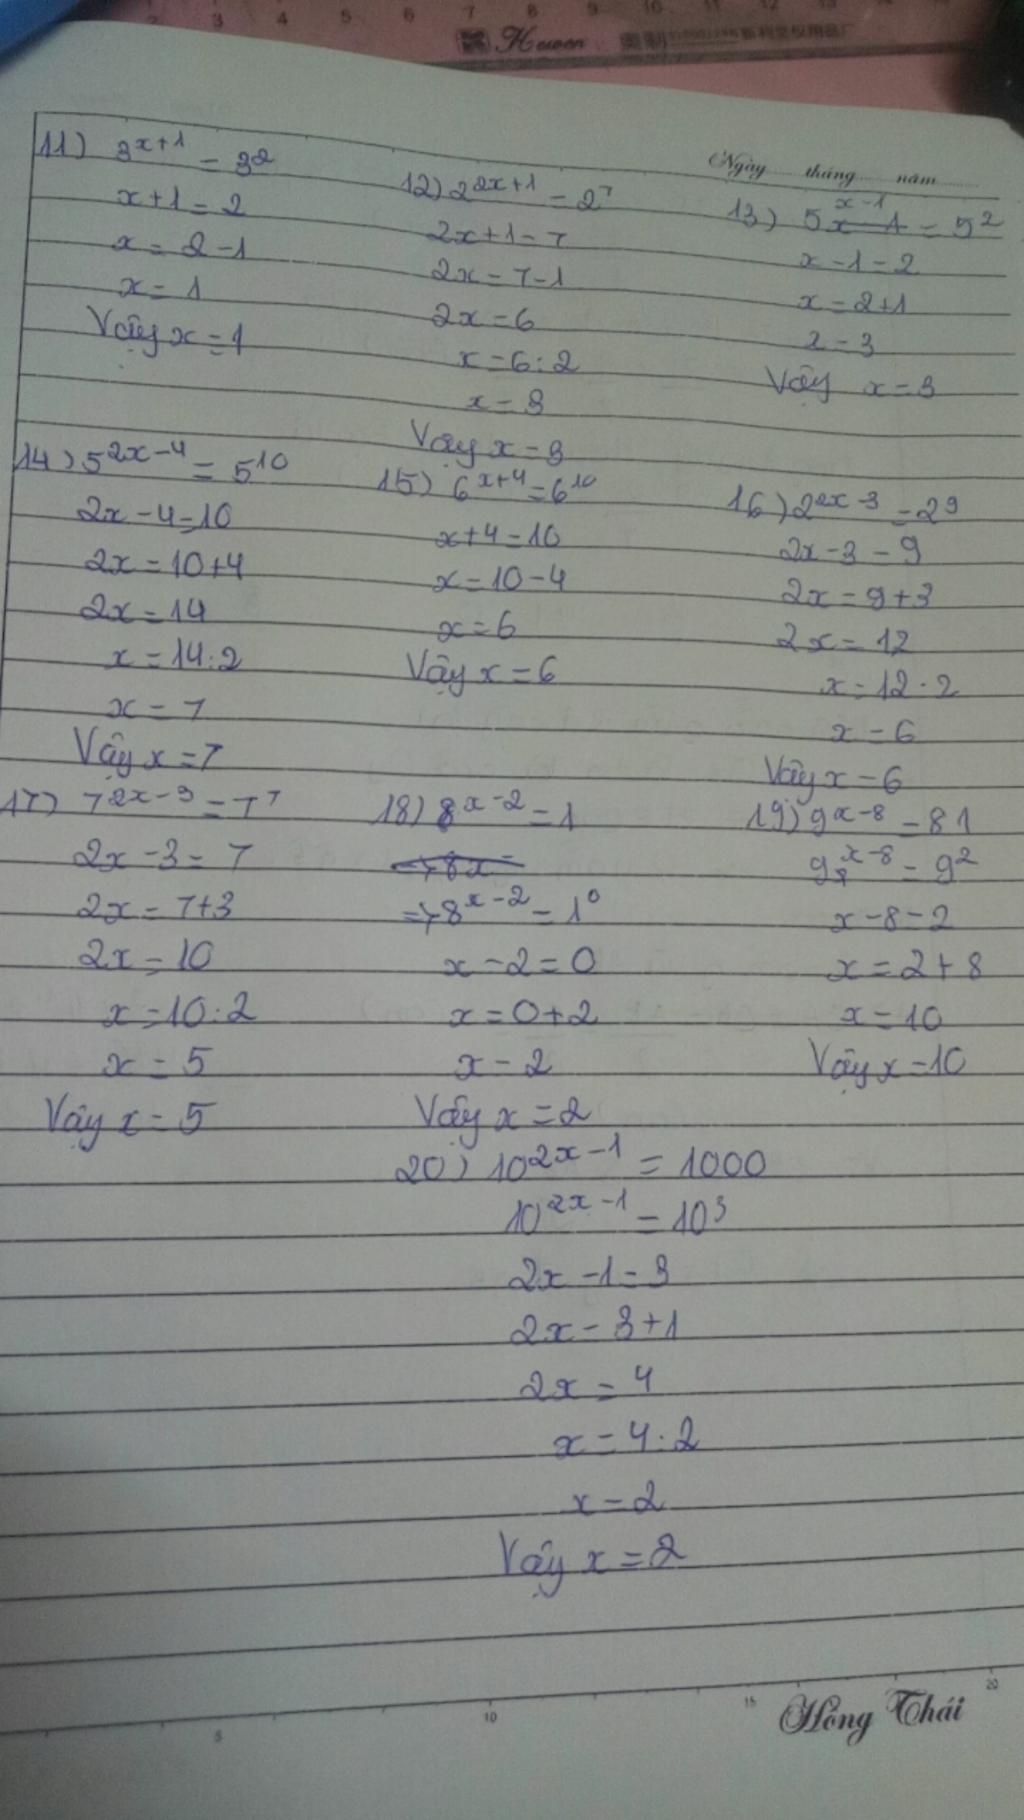 2 3 4 5 6 7 8 9 10 11 12 13
Ngày tháng năm
11) 3^{x+1} = 3^2
x+1 = 2
x = 2-1
x = 1
Vậy x = 1
12) 2^{2x+1} = 2^7
2x+1 = 7
2x = 7-1
2x = 6
x = 6:2
x = 3
Vậy x = 3
x-1
13) 5x-1 = 5^2
x-1 = 2
x = 2+1
x = 3
Vậy x = 3
14) 5^{2x-4} = 5^{10}
2x-4=10
2x = 10+4
2x = 14
x = 14:2
x = 7
Vậy x = 7
15) 6^{x+4} = 6^{10}
x+4 = 10
x = 10-4
x = 6
Vậy x = 6
16) 2^{2x-3} = 2^9
2x-3 = 9
2x = 9+3
2x = 12
x = 12:2
x = 6
Vậy x = 6
17) 7^{2x-3} = 7^7
2x-3 = 7
2x = 7+3
2x = 10
x = 10:2
x = 5
Vậy x = 5
18) 8^{x-2} = 1
=> 8^{x-2} = 1^0
x-2 = 0
x = 0+2
x = 2
Vậy x = 2
19) 9^{x-8} = 81
9^{x-8} = 9^2
x-8 = 2
x = 2+8
x = 10
Vậy x = 10
20) 10^{2x-1} = 1000
10^{2x-1} = 10^3
2x-1 = 3
2x = 3+1
2x = 4
x = 4:2
x = 2
Vậy x = 2
5 10 15 20
Hồng Thái